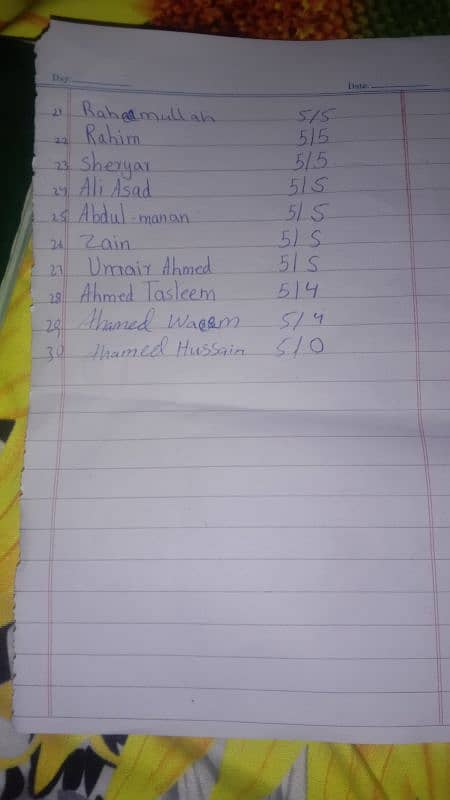 Day:
Date:
21 Rahamullah 5/5
22 Rahim 5/5
23 Sheryar 5/5
24 Ali Asad 5/5
25 Abdul-manan 5/5
26 Zain 5/5
27 Umair Ahmed 5/5
28 Ahmed Tasleem 5/4
29 Ahamed 5/4
30 Ahamed Hussain 5/0